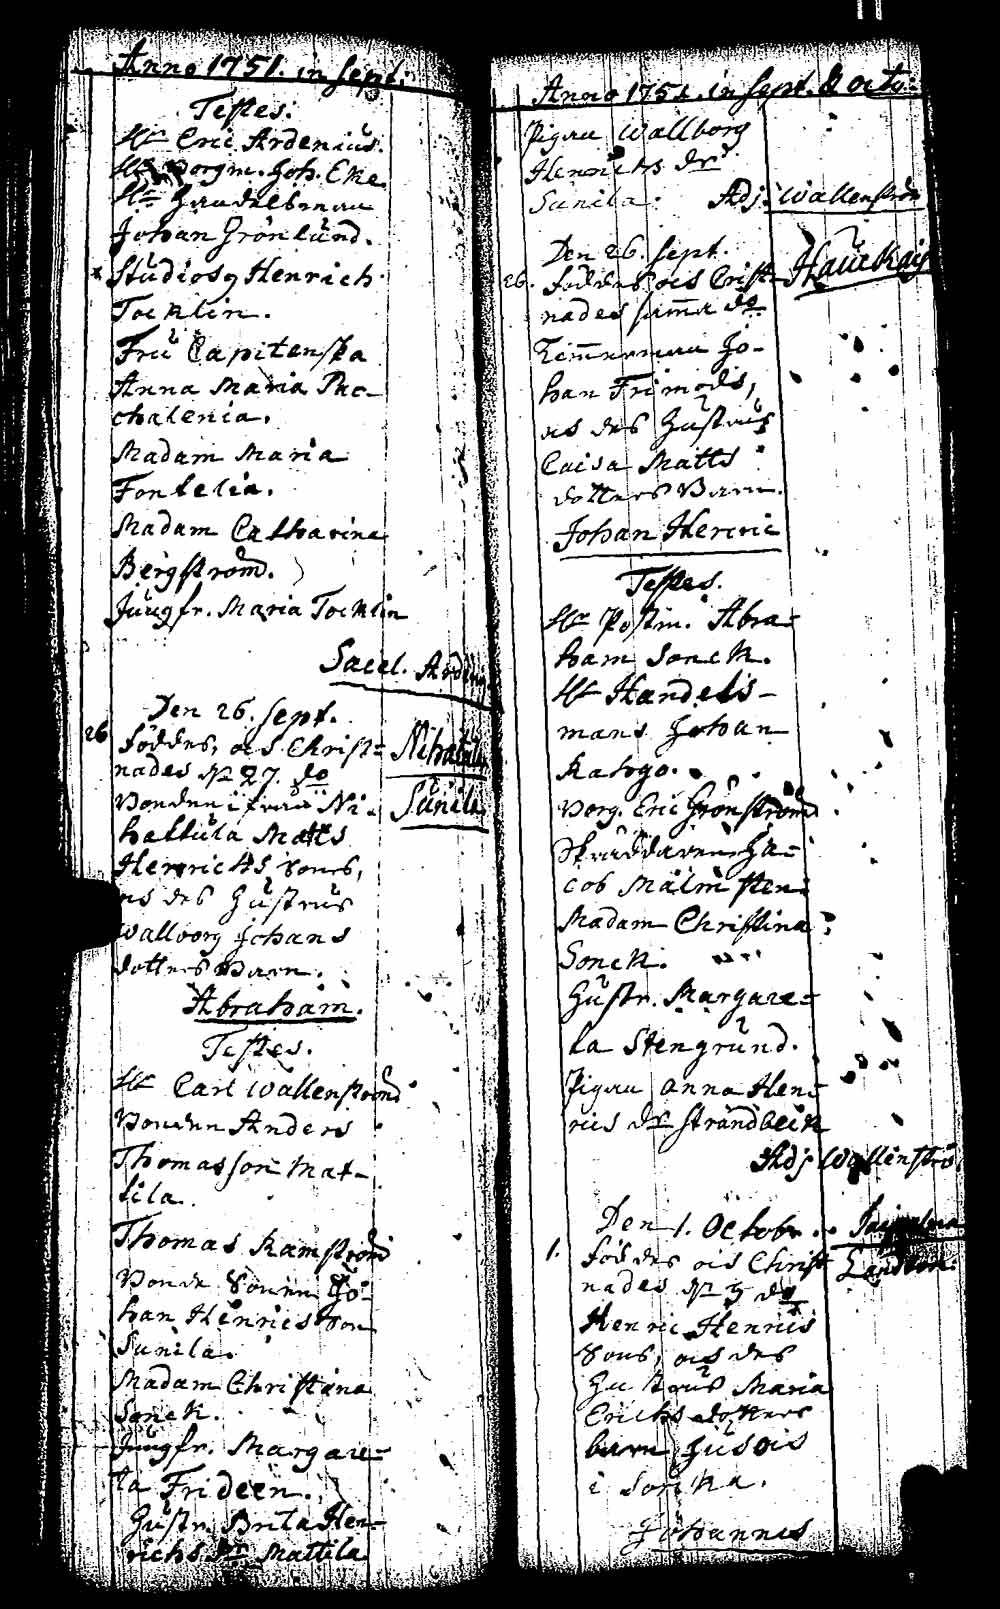 Anno 1751. in Sept:
Testes.
Hr Eric Ardenius.
Hr Borgm. Joh. Eke
Hr
Johan Grönlund.
x Studiosq Henrich
Tocklin.
Fru Capitenska
Anna Maria Pac-
chalenia.
Madam Maria
Fontelia.
Madam Catharina
Bergström.
Jungfr. Maria Tocklin
Sacel. Ardenius
Den 26. Sept.
26 föddes, ocs Christ= Nihattula
nades d. 27. do
Bonden ifrån Ni- Sunila
hattula Matts
Henrichs Sons,
ocs des Hustrus
Wallborg Johans
dotters Barn.
Abraham.
Testes.
Hr Carl Wallenström
Bonden Anders
Thomasson Mat-
tila.
Thomas Ramström
Bonde Sonen Jo-
han Henricsson
Sunila.
Madam Christina
Sonck.
Jungfr. Margare-
ta Frideen.
Hustr. Brita Hen-
richs dr Mattila
Anno 1751. in Sept. & octo:
Pigan Wallborg
Henrichs dr
Sunila. Adj: Wallenström
Den 26. Sept.
26. föddes ocs Crist- Haukais
nades samma do
Timmerman Jo-
han Frimods,
ocs des Hustrus
Caisa Matts
dotters Barn.
Johan Henric
Testes.
Hr Postm. Abra-
ham Sonck.
Hr Handels-
mans Johan
Kahgo.
Borg. Eric Grönström
Skräddaren Ja-
cob Malmsten
Madam Christina
Sonck.
Hustr. Margare-
ta Stengrund.
Pigan Anna Hen-
rics dr Strandbeck
Adj Wallenströ
Den 1. Octobr.
1. föddes ocs Christ
nades d. 3 do
Henric Henrics
Sons, ocs des
Hustrus Maria
Erichs dotters
barn Husois
i Sorkka.
Johannes